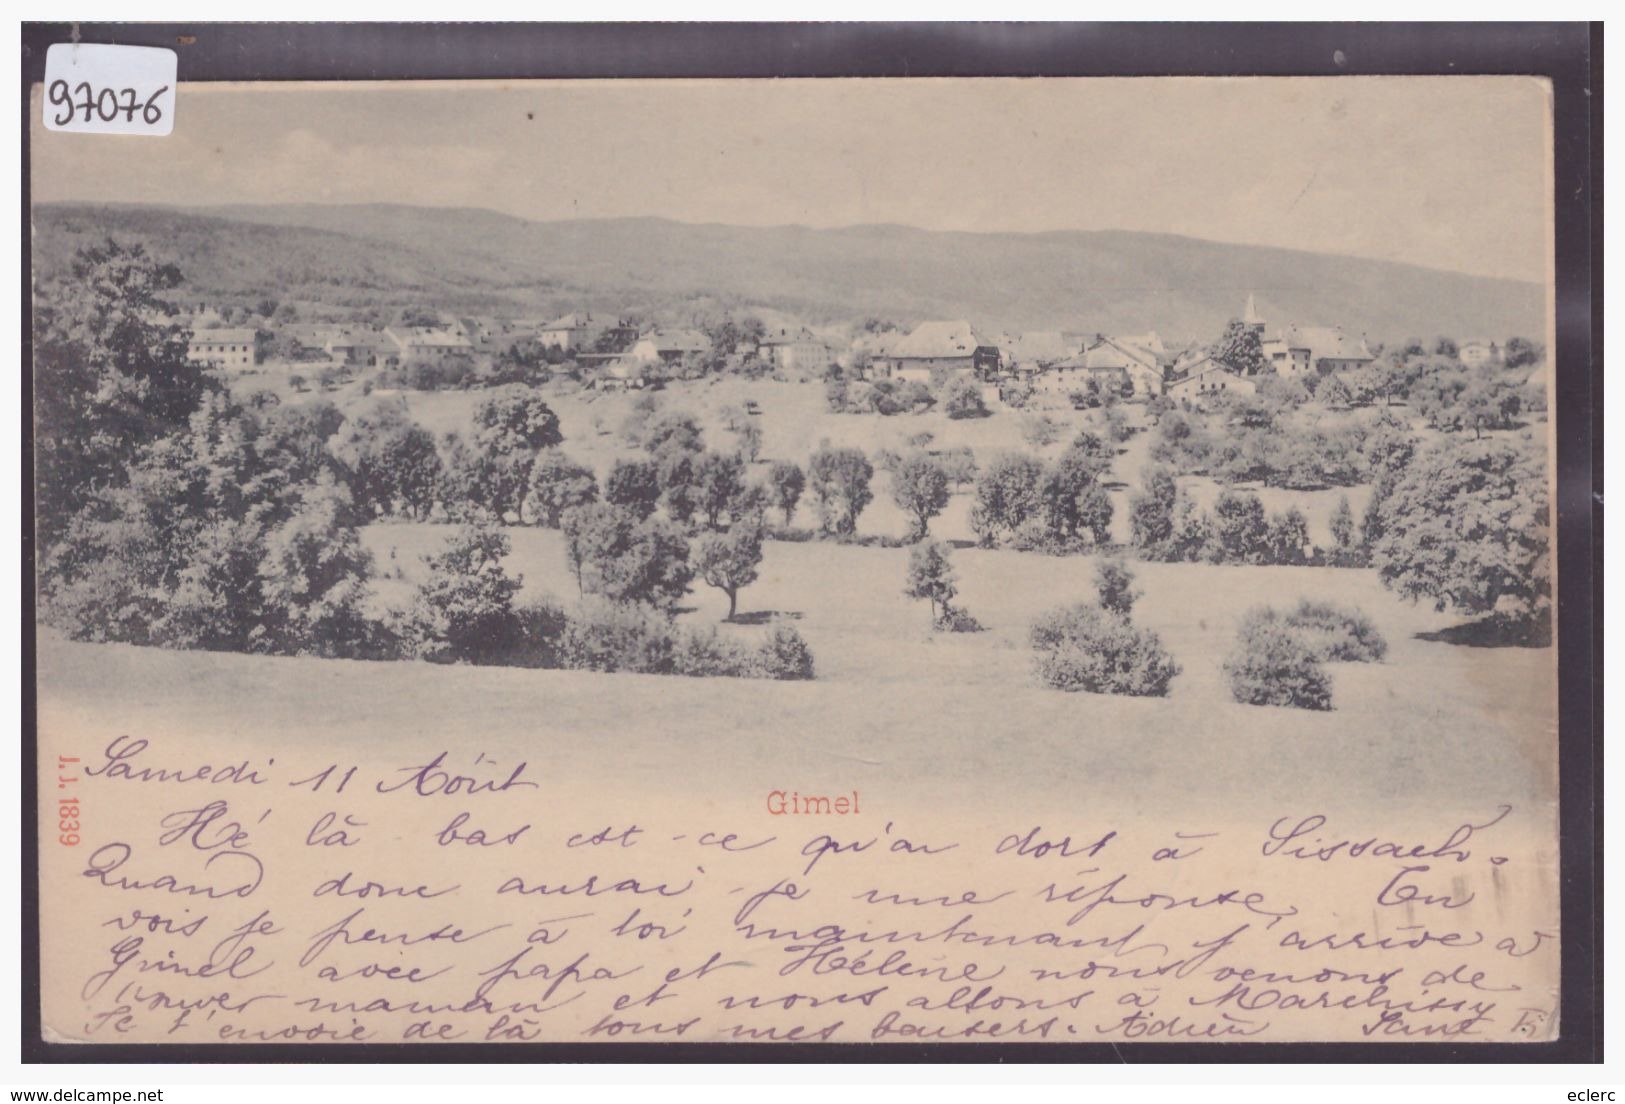 97076
J.J. 1839
Gimel
Samedi 11 Août
Hé là-bas est-ce qu'on dort à Sissach.
Quand donc aurai-je une réponse. Tu
vois je pense à toi maintenant j'arrive à
Gimel avec papa et Hélène nous venons de
maman et nous allons à Marchissy
Je t'envoie de là tous mes baisers. Adrien
www.delcampe.net
eclerc